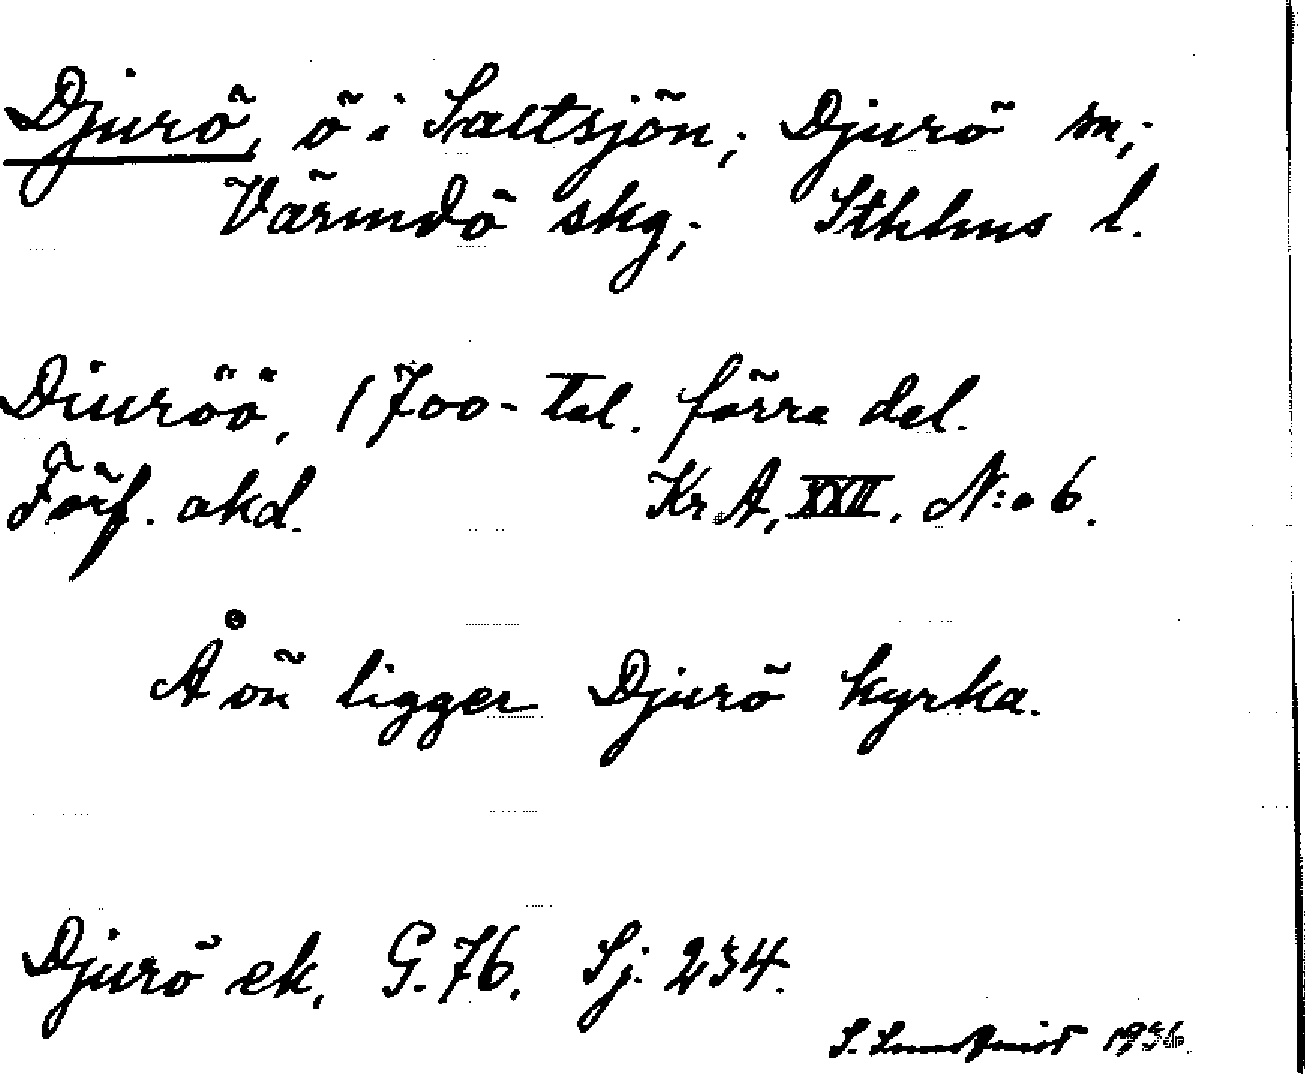 Djurö, ö i Saltsjön; Djurö sn;
Värmdö skg; Sthlms l.
Diuröö, 1700-tal. förra del.
Förf. okd. Kr A, XXII. N:o 6.
Å ön ligger Djurö kyrka.
Djurö ek. G. 76. Sj. 234.
S. 1936.